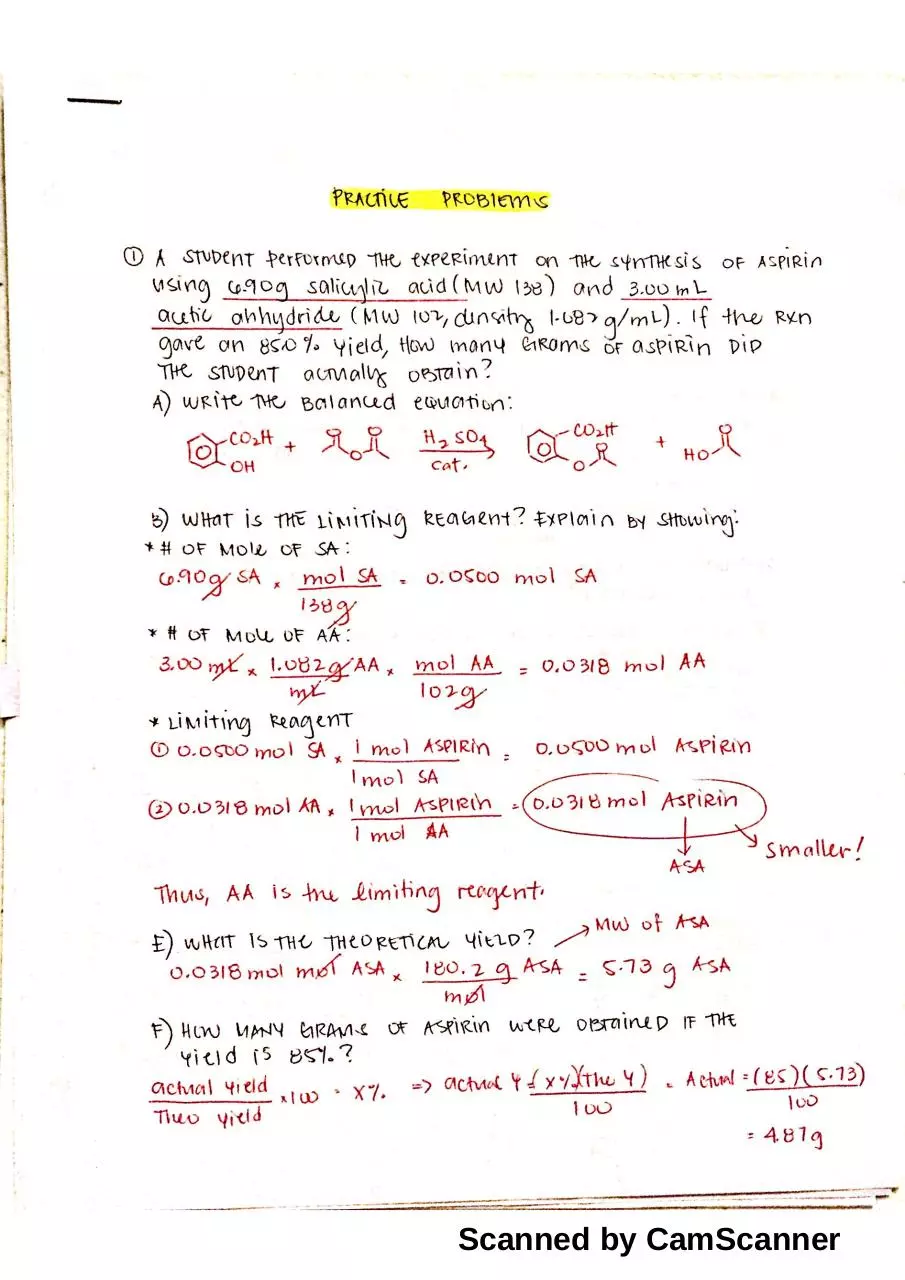 PRACTICE PROBLEMS
① A STUDENT PERFORMED THE EXPERIMENT ON THE SYNTHESIS OF ASPIRIN
using 6.90g salicylic acid (MW 138) and 3.00 mL
acetic anhydride (MW 102, density 1.082 g/mL). If the RXN
gave an 85.0% yield, How many GRAMS OF aspirin DID
THE STUDENT actually OBTAIN?
A) WRITE THE Balanced equation:
CO₂H + O H₂SO₄ CO₂H + HO
OH cat. O
B) WHAT is THE LIMITING REAGENT? Explain BY SHOWING:
* # OF Mole OF SA:
6.90g SA x mol SA = 0.0500 mol SA
138g
* # OF MOLE OF AA:
3.00 mL x 1.082g AA x mol AA = 0.0318 mol AA
mL 102g
* LIMITING Reagent
① 0.0500 mol SA x 1 mol ASPIRIN = 0.0500 mol ASPIRIN
1 mol SA
② 0.0318 mol AA x 1 mol ASPIRIN = 0.0318 mol ASPIRIN
1 mol AA
ASA
smaller!
Thus, AA is the limiting reagent.
E) WHAT IS THE THEORETICAL YIELD? → MW of ASA
0.0318 mol mol ASA x 180.2 g ASA = 5.73 g ASA
mol
F) HOW MANY GRAMS OF ASPIRIN WERE OBTAINED IF THE
yield is 85%.?
actual yield x100 = X% => actual Y = (X%)(the Y) = Actual = (85)(5.73)
Theo yield 100 100
= 4.87g
Scanned by CamScanner